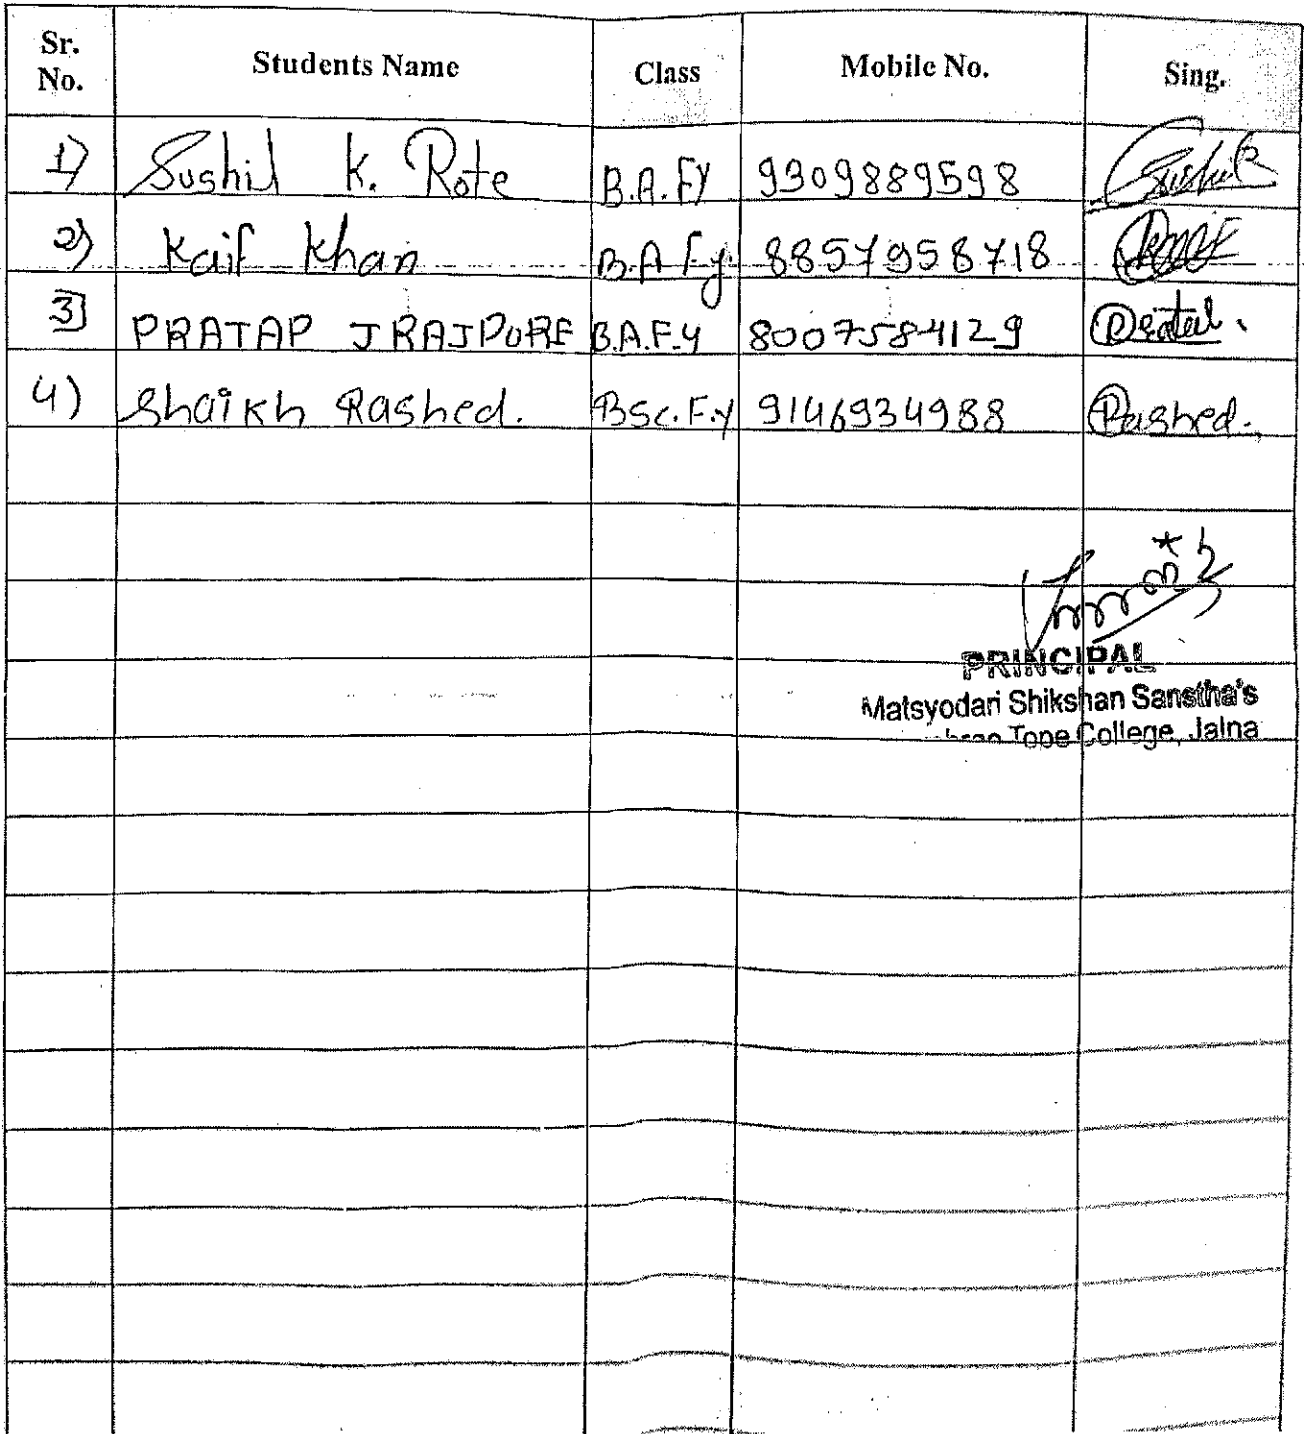 Sr. No. Students Name Class Mobile No. Sing.
1) Sushil K. Rote B.A. FY 9309889598 Sushil
2) Kaif Khan B.A Fy 8857958718
3] PRATAP J RAJPURE B.A.F.Y 8007584129
4) Shaikh Rashed. BSc.F.y 9146934988 Rashed.
PRINCIPAL
Matsyodari Shikshan Sanstha's
Tope College, Jalna